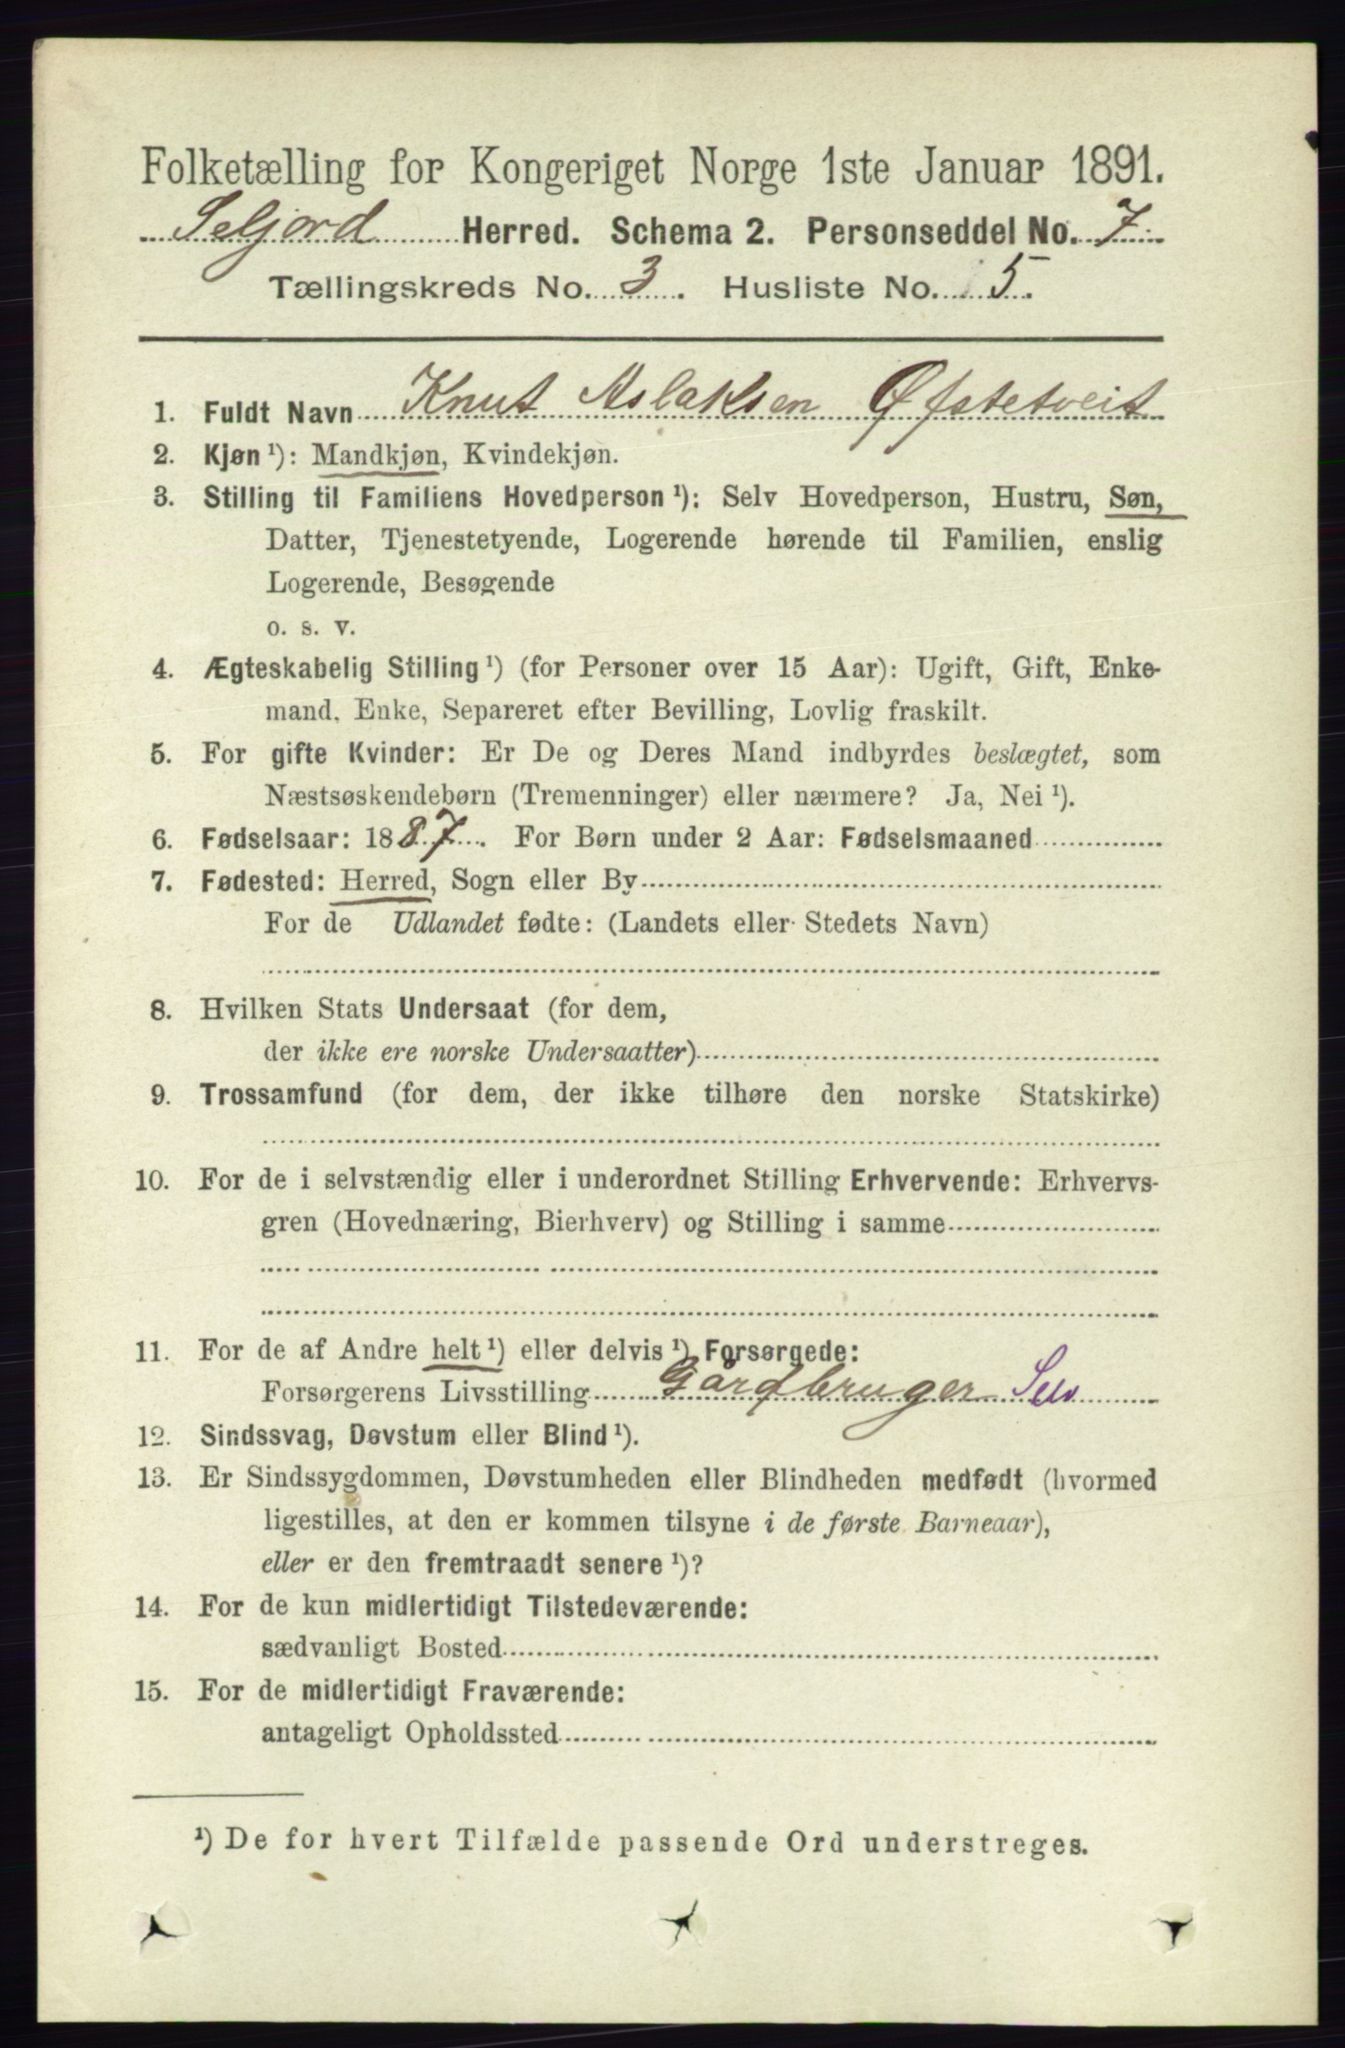 Folketælling for Kongeriget Norge 1ste Januar 1891.
Seljord Herred. Schema 2. Personseddel No. 7
Tællingskreds No. 3. Husliste No. 5.
1. Fuldt Navn Knut Aslaksen Øfstetveit
2. Kjøn ¹): Mandkjøn, Kvindekjøn.
3. Stilling til Familiens Hovedperson ¹): Selv Hovedperson, Hustru, Søn,
Datter, Tjenestetyende, Logerende hørende til Familien, enslig
Logerende, Besøgende
o. s. v.
4. Ægteskabelig Stilling ¹) (for Personer over 15 Aar): Ugift, Gift, Enke-
mand, Enke, Separeret efter Bevilling, Lovlig fraskilt.
5. For gifte Kvinder: Er De og Deres Mand indbyrdes beslægtet, som
Næstsøskendebørn (Tremenninger) eller nærmere? Ja, Nei ¹).
6. Fødselsaar: 1887. For Børn under 2 Aar: Fødselsmaaned
7. Fødested: Herred, Sogn eller By
For de Udlandet fødte: (Landets eller Stedets Navn)
8. Hvilken Stats Undersaat (for dem,
der ikke ere norske Undersaatter)
9. Trossamfund (for dem, der ikke tilhøre den norske Statskirke)
10. For de i selvstændig eller i underordnet Stilling Erhvervende: Erhvervs-
gren (Hovednæring, Bierhverv) og Stilling i samme
11. For de af Andre helt ¹) eller delvis ¹) Forsørgede:
Forsørgerens Livsstilling Gårdbruger Selv
12. Sindssvag, Døvstum eller Blind ¹).
13. Er Sindssygdommen, Døvstumheden eller Blindheden medfødt (hvormed
ligestilles, at den er kommen tilsyne i de første Barneaar),
eller er den fremtraadt senere ¹)?
14. For de kun midlertidigt Tilstedeværende:
sædvanligt Bosted
15. For de midlertidigt Fraværende:
antageligt Opholdssted
¹) De for hvert Tilfælde passende Ord understreges.